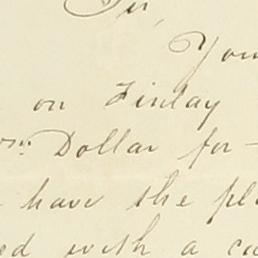 Sir,
You
on Finlay
Dollar for -
have the pl
ed with a ca